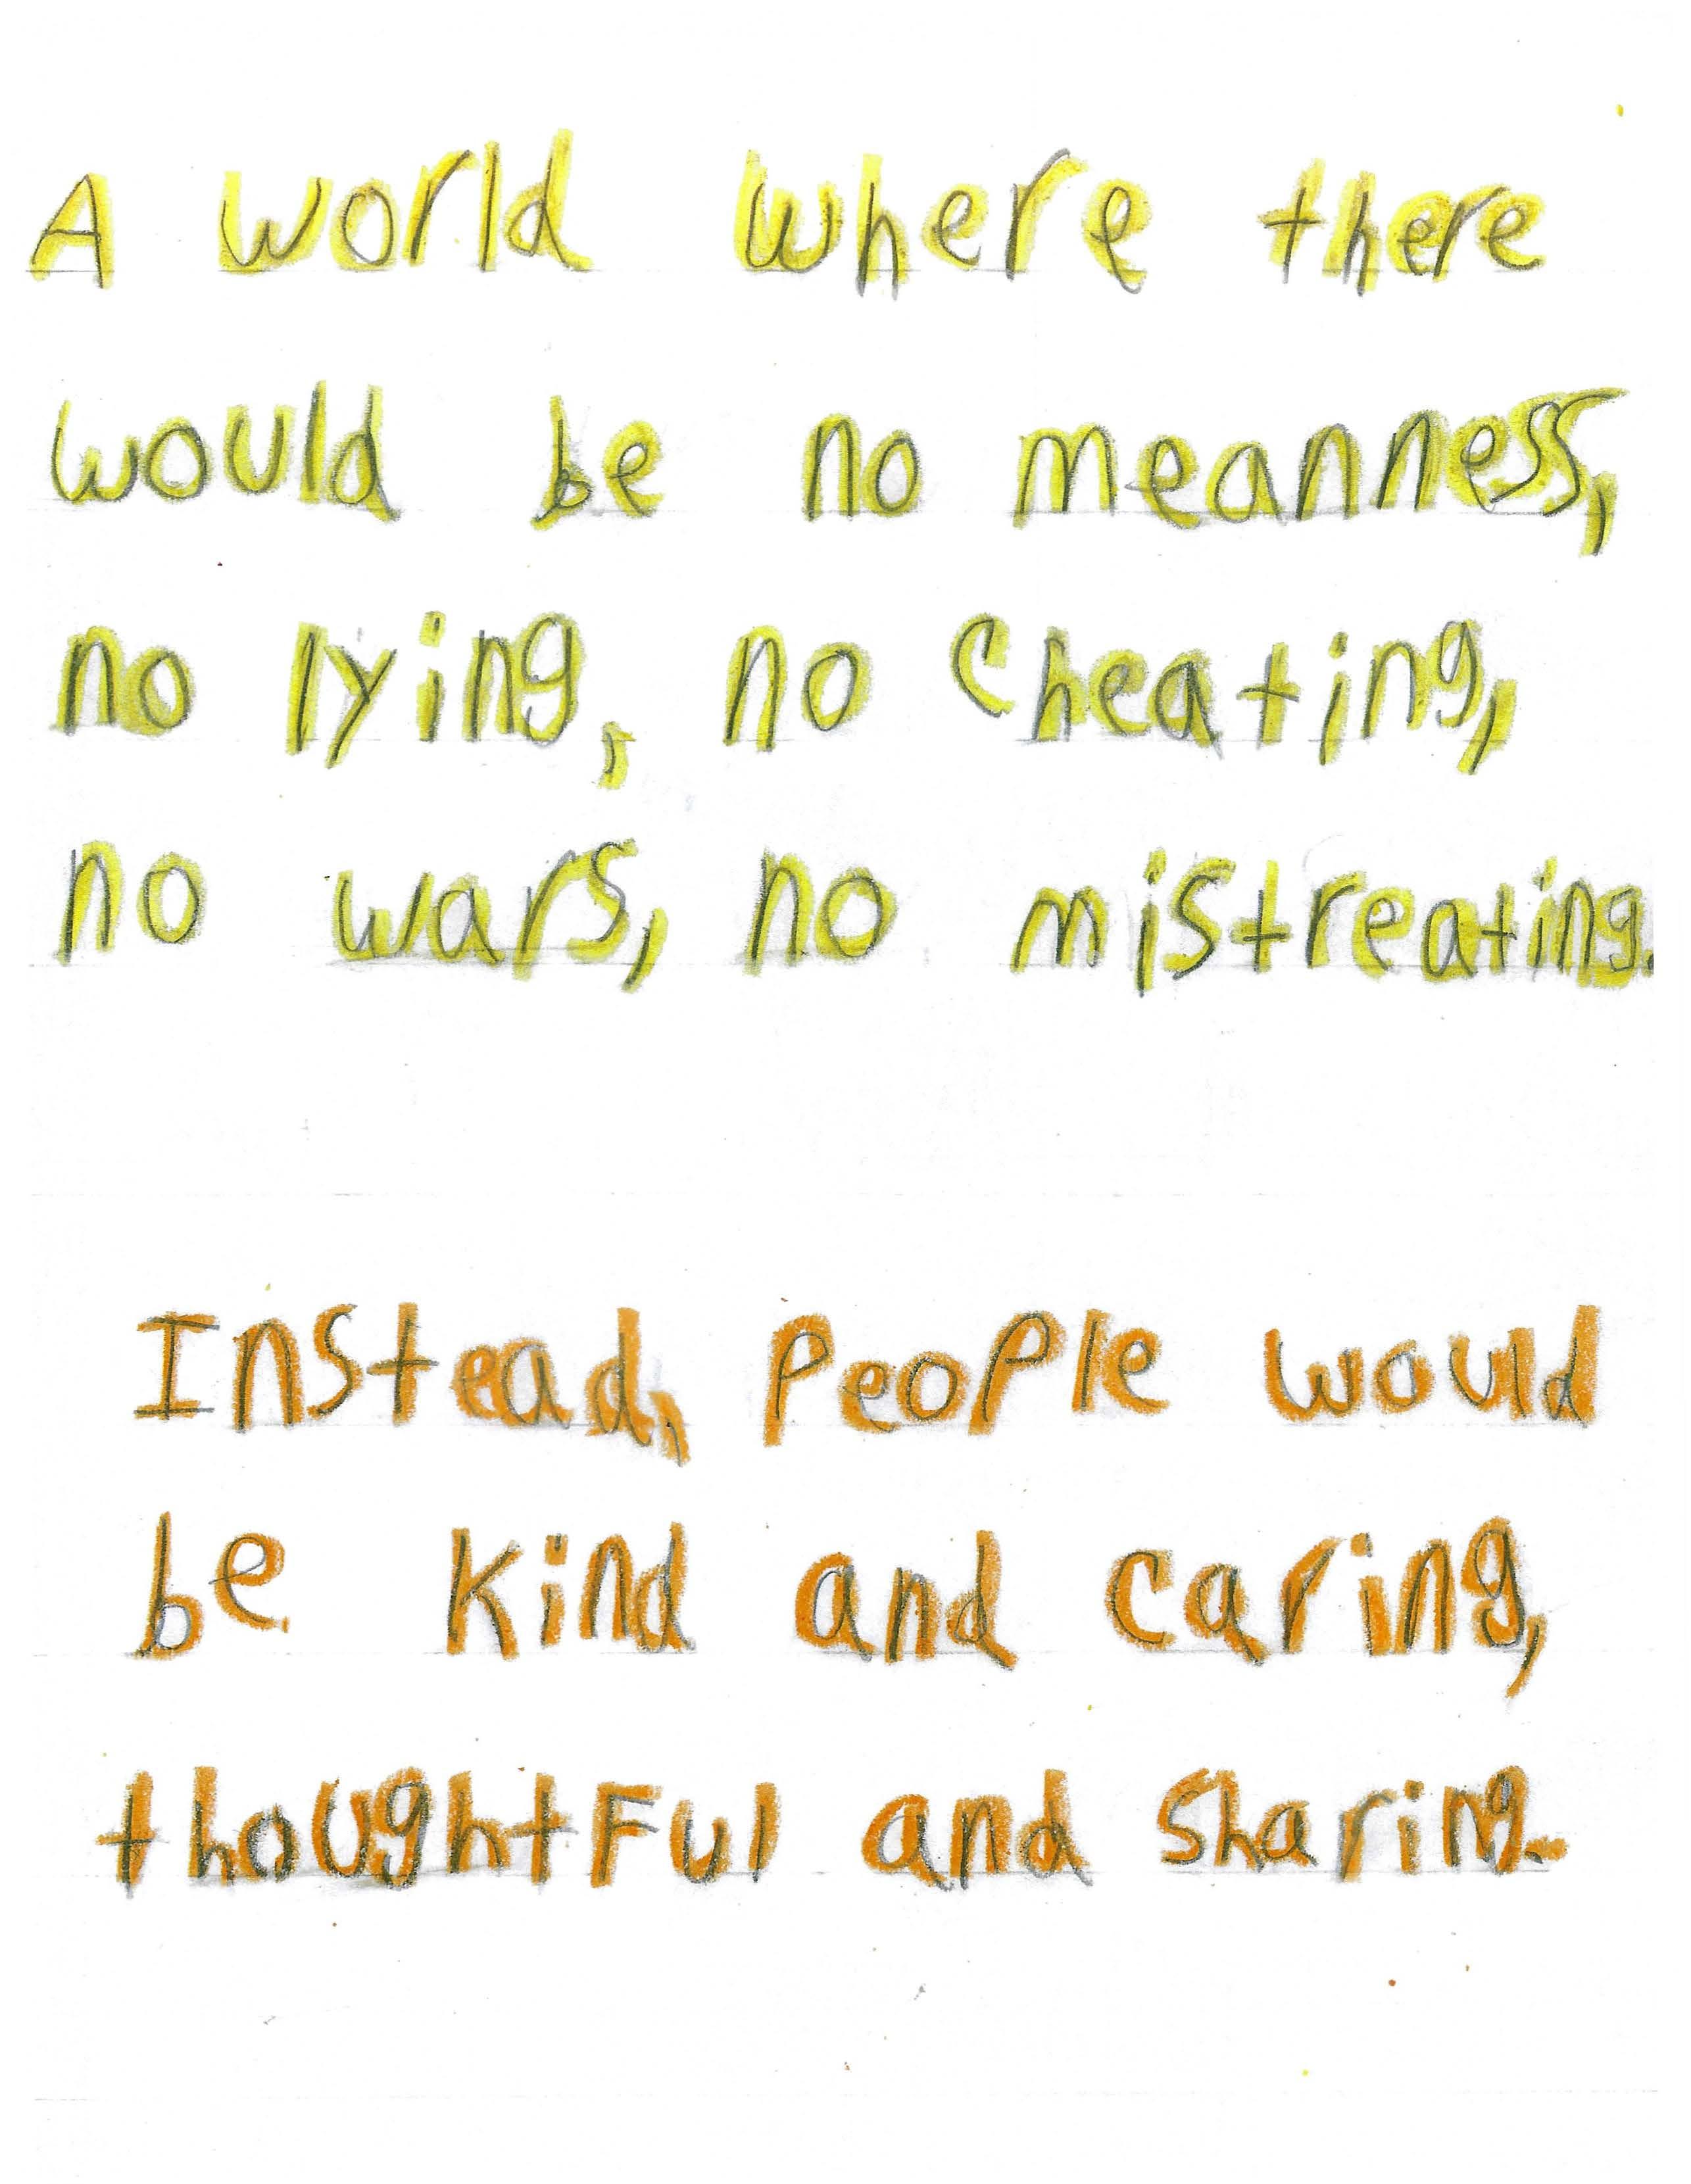 A world where there
would be no meanness,
no lying, no cheating,
no wars, no mistreating.
Instead, people would
be kind and caring,
thoughtful and sharing.